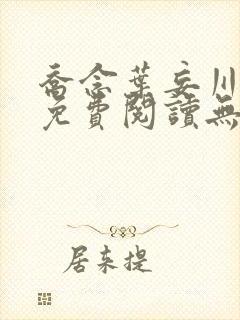 喬念葉妄川
免費閱讀無
居来提